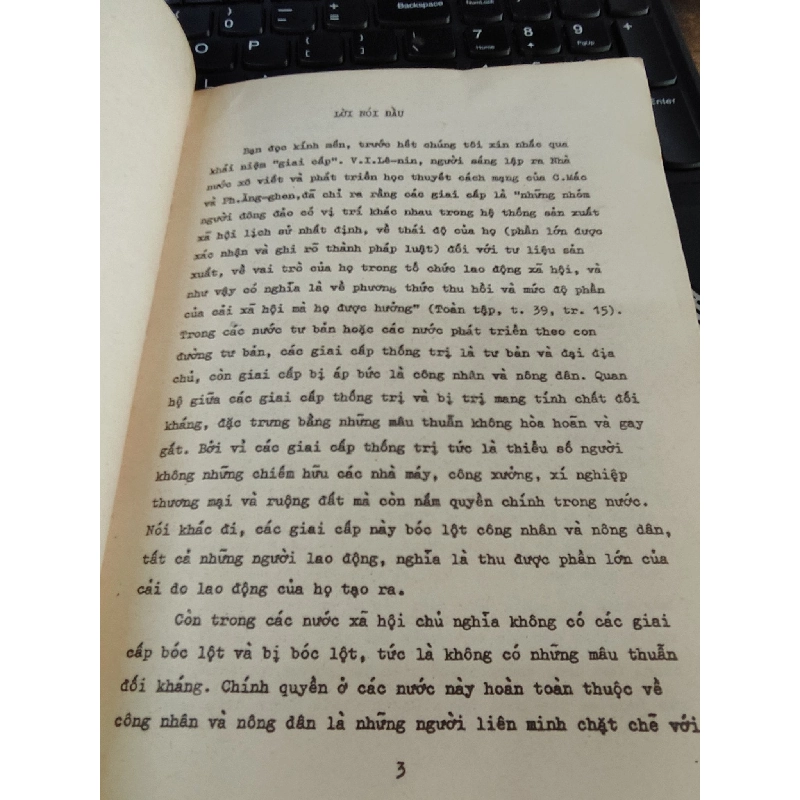 Backspace
NumLock
0
-
+
=
O
P
{
[
}
]
7
Home
8
9
PgUp
Enter
LỜI NÓI ĐẦU
Bạn đọc kính mến, trước hết chúng tôi xin nhắc qua
khái niệm "giai cấp". V.I.Lê-nin, người sáng lập ra Nhà
nước xô viết và phát triển học thuyết cách mạng của C.Mác
và Ph.Ăng-ghen,đã chỉ ra rằng các giai cấp là "những nhóm
người đông đảo có vị trí khác nhau trong hệ thống sản xuất
xã hội lịch sử nhất định, về thái độ của họ (phần lớn được
xác nhận và ghi rõ thành pháp luật) đối với tư liệu sản
xuất, về vai trò của họ trong tổ chức lao động xã hội, và
như vậy có nghĩa là về phương thức thu hồi và mức độ phần
của cải xã hội mà họ được hưởng" (Toàn tập, t. 39, tr. 15).
Trong các nước tư bản hoặc các nước phát triển theo con
đường tư bản, các giai cấp thống trị là tư bản và đại địa
chủ, còn giai cấp bị áp bức là công nhân và nông dân. Quan
hệ giữa các giai cấp thống trị và bị trị mang tính chất đối
kháng, đặc trưng bằng những mâu thuẫn không hòa hoãn và gay
gắt. Bởi vì các giai cấp thống trị tức là thiểu số người
không những chiếm hữu các nhà máy, công xưởng, xí nghiệp
thương mại và ruộng đất mà còn nắm quyền chính trong nước.
Nói khác đi, các giai cấp này bóc lột công nhân và nông dân,
tất cả những người lao động, nghĩa là thu được phần lớn của
cải do lao động của họ tạo ra.
Còn trong các nước xã hội chủ nghĩa không có các giai
cấp bóc lột và bị bóc lột, tức là không có những mâu thuẫn
đối kháng. Chính quyền ở các nước này hoàn toàn thuộc về
công nhân và nông dân là những người liên minh chặt chẽ với
3